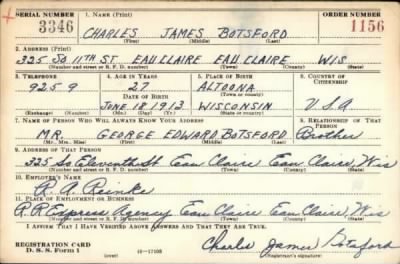 SERIAL NUMBER 1. NAME (Print) ORDER NUMBER
3346 CHARLES JAMES BOTSFORD 1156
(First) (Middle) (Last)
2. ADDRESS (Print)
325 SO 11TH ST EAU CLAIRE EAU CLAIRE WIS
(Number and street or R. F. D. number) (Town) (County) (State)
3. TELEPHONE 4. AGE IN YEARS 5. PLACE OF BIRTH 6. COUNTRY OF CITIZENSHIP
9259 27 ALTOONA
DATE OF BIRTH (Town or county)
JUNE 18 1913 WISCONSIN USA
(Exchange) (Number) (Mo.) (Day) (Yr.) (State or country)
7. NAME OF PERSON WHO WILL ALWAYS KNOW YOUR ADDRESS 8. RELATIONSHIP OF THAT PERSON
MR. GEORGE EDWARD BOTSFORD Brother
(Mr., Mrs., Miss) (First) (Middle) (Last)
9. ADDRESS OF THAT PERSON
325 So Eleventh St Eau Claire Eau Claire, Wis
(Number and street or R. F. D. number) (Town) (County) (State)
10. EMPLOYER'S NAME
R. A. Reinke
11. PLACE OF EMPLOYMENT OR BUSINESS
R.R Express Agency Eau Claire Eau Claire, Wis
(Number and street or R. F. D. number) (Town) (County) (State)
I AFFIRM THAT I HAVE VERIFIED ABOVE ANSWERS AND THAT THEY ARE TRUE.
REGISTRATION CARD
D. S. S. Form 1 (over) 16—17105 Charles James Botsford
(Registrant's signature)